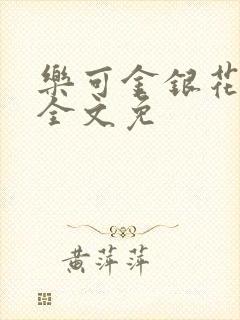 樂可金銀花
全文免
黄萍萍